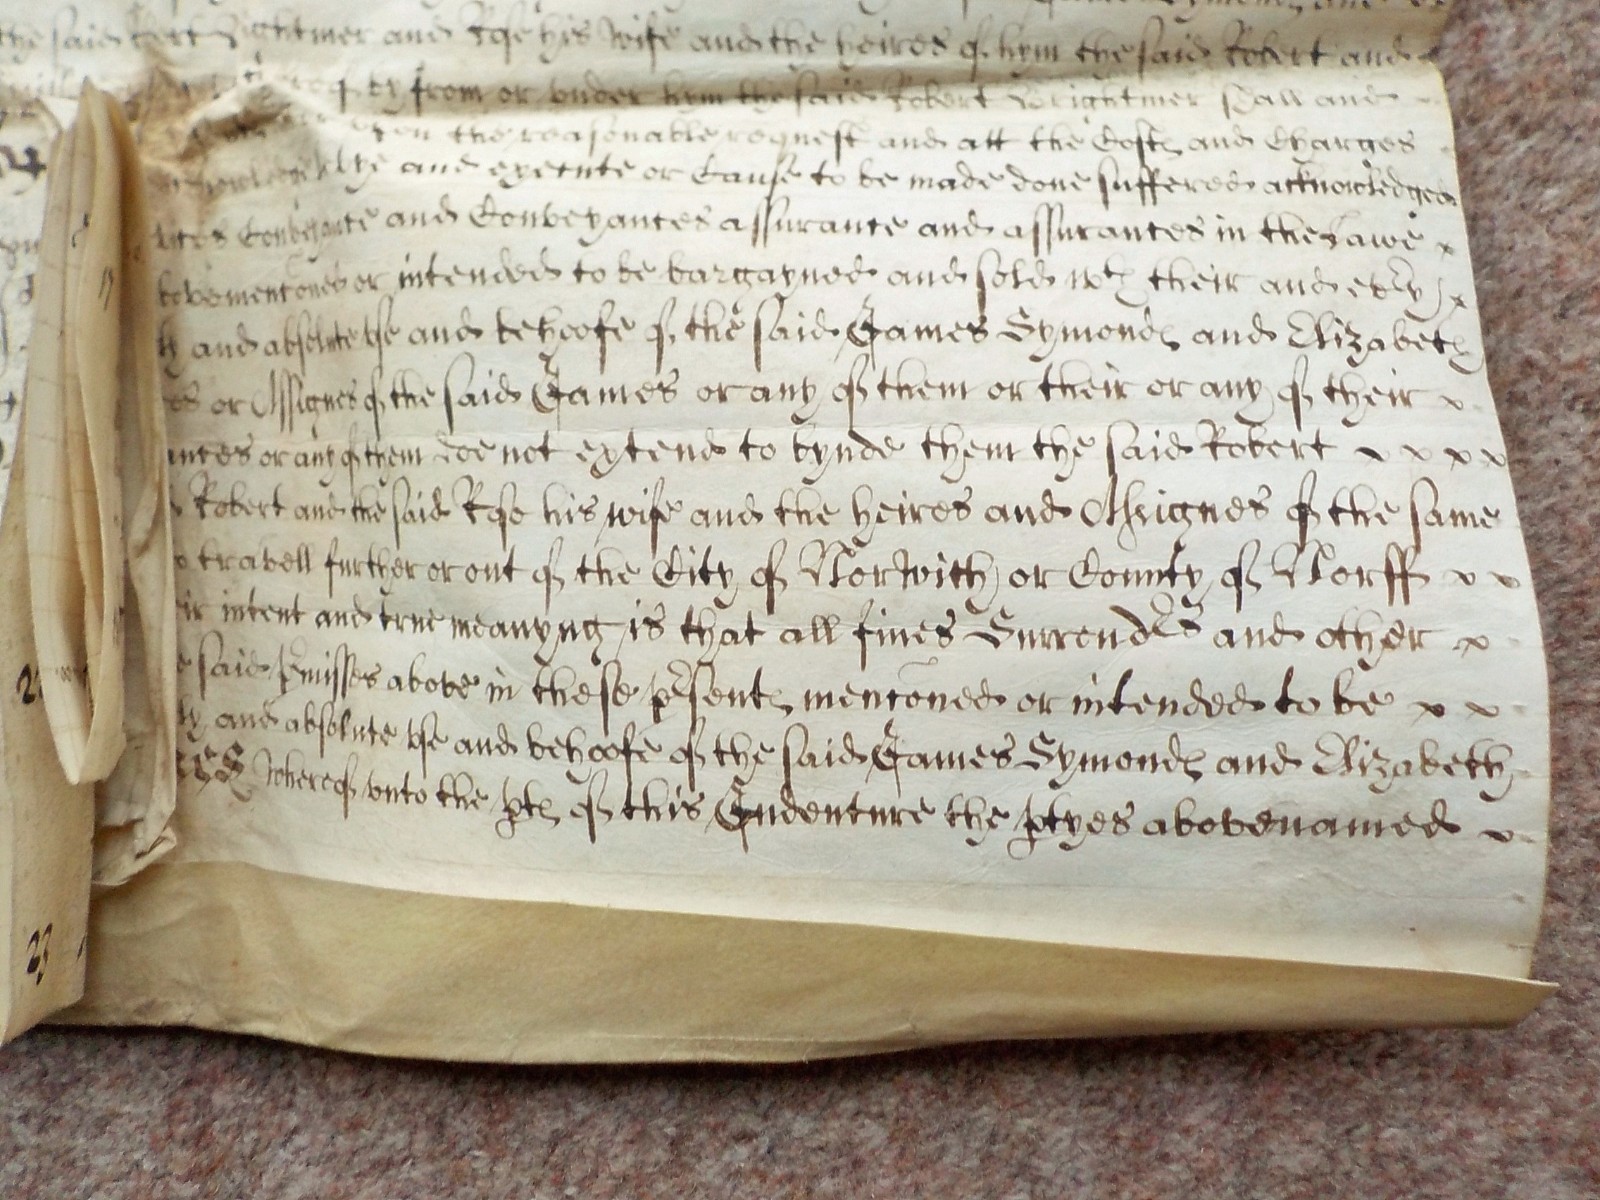 the said Robert Brightmer and Rose his wife and the heires of hym the said Robert and
by from or under hym the said Robert Brightmer shall and
upon the reasonable request and att the Costs and Charges
knowledge and execute or Cause to be made done suffered acknowledged
Conveyance and Conveyances assurance and assurances in the Lawe x
bovemenconed or intended to be bargayned and sold wth their and evry x
and absolute use and behoofe of the said James Symonds and Elizabeth
or Assignes of the said James or any of them or their or any of their x
or any of them doe not extend to bynde them the said Robert x x x x
Robert and the said Rose his wife and the heires and Assignes of the same
travell further or out of the City of Norwich or County of Norff x x
intent and true meanyng is that all fines Surrendrs and other x
said prmisses above in these prsents menconed or intended to be x x
and absolute use and behoofe of the said James Symonds and Elizabeth
Whereof unto the pts of this Indenture the ptyes abovenamed x
23